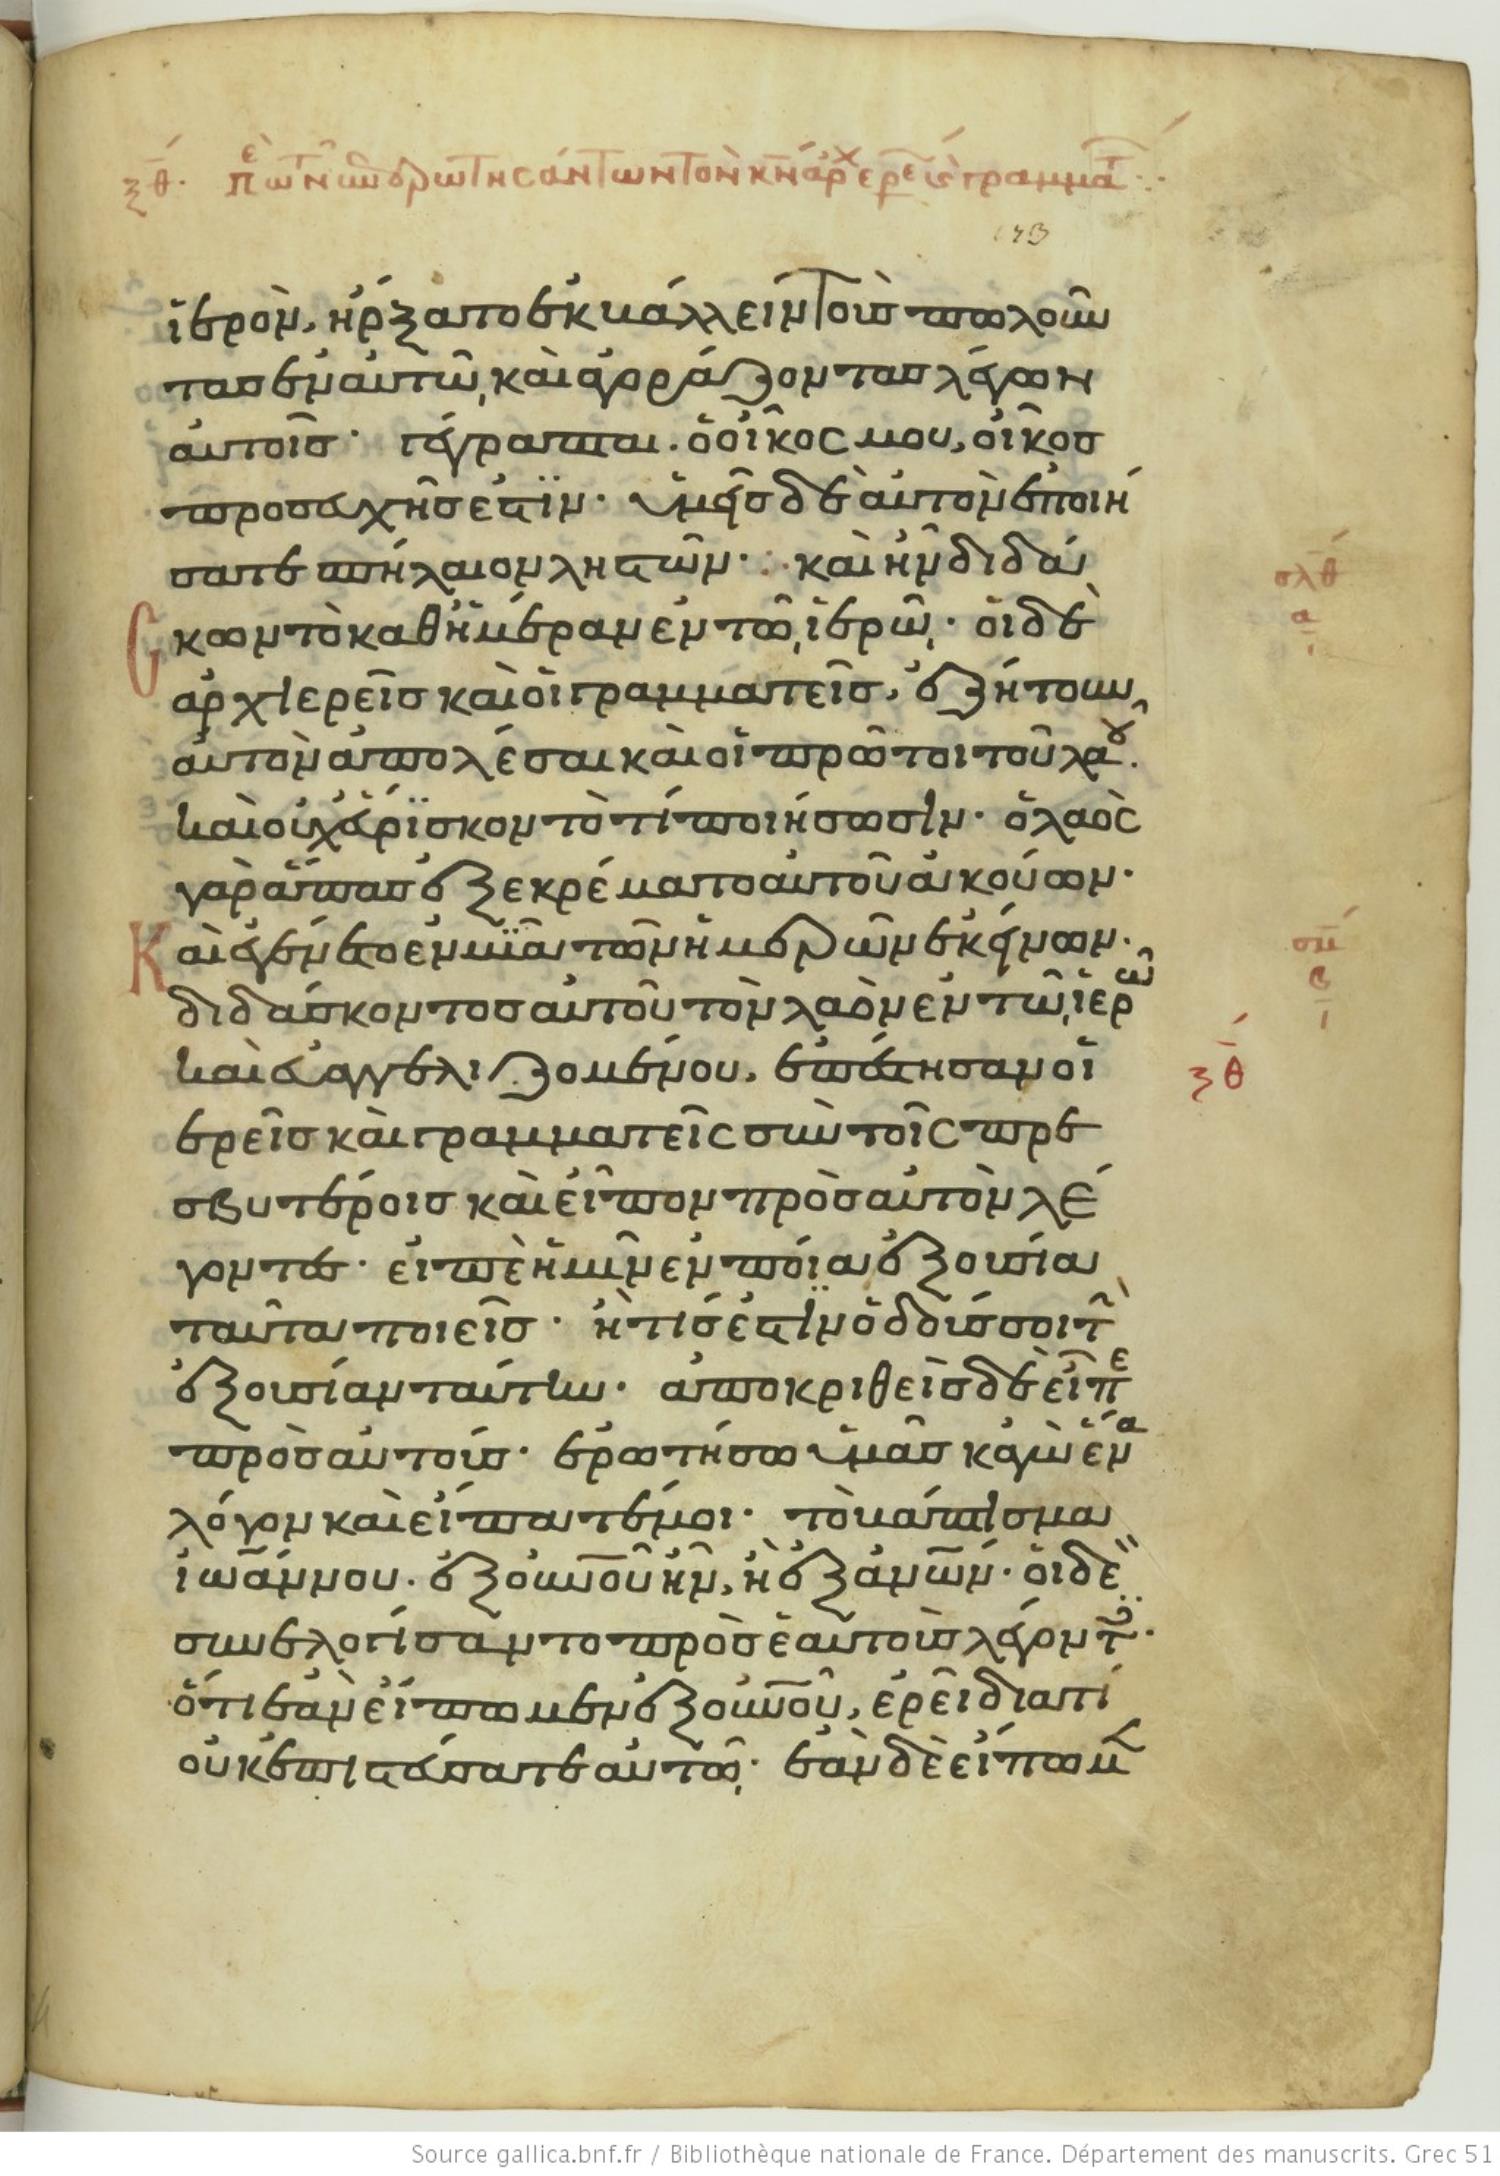 ξθ. περὶ τῶν ἐπερωτησάντων τὸν κν ἀρχιερεῖς γραμμα
ἱερὸν, ἤρξατο ἐκβάλλειν τοὺς πωλοῦν
τας ἐν αὐτῶ, καὶ ἀγοράζοντας λέγων
αὐτοῖς· γέγραπται. ὁ οἶκός μου, οἶκος
προσευχῆς ἐστϊν· ὑμεῖς δὲ αὐτὸν ἐποιή
σατε σπήλαιον ληστῶν·: καὶ ἦν διδά
σκων τὸ καθημέραν ἐν τῶ, ἱερῶ,· οἱ δὲ
ἀρχιερεῖς καὶ οἱ γραμματεῖς, ἐζήτουν,
αὐτὸν ἀπολέσαι καὶ οἱ πρῶτοι τοῦ λαοῦ.
καὶ οὐχ εὕρϊσκον τὸ τί ποιήσωσιν· ὁ λαὸς
γὰρ ἅπας ἐξεκρέματο αὐτοῦ ἀκούων·
Καὶ ἐγένετο ἐν μϊᾶ τῶν ἡμερῶν ἐκείνων·
διδάσκοντος αὐτοῦ τὸν λαὸν ἐν τῶ, ἱερῶ
καὶ εὐαγγελιζομένου, ἐπέστησαν οἱ
ἱερεῖς καὶ γραμματεῖς σὺν τοῖς πρε
σβυτέροις καὶ εἶπον πρὸς αὐτὸν λέ
γοντες· εἰπὲ ἡμῖν ἐν ποία ἐξουσία
ταῦτα ποιεῖς· ἢ τίς ἐστϊν ὁ δούς σοι τὴν
ἐξουσίαν ταύτην· ἀποκριθεὶς δὲ εἶπε
πρὸς αὐτούς· ἐρωτήσω ὑμᾶς κἀγὼ ἕνα
λόγον καὶ εἴπατέ μοι· τὸ βάπτισμα
ἰωάννου· ἐξ οὐνοῦ ἦν, ἢ ἐξ ἀνων· οἱ δὲ
συνελογίσαντο πρὸς ἑαυτοὺς λέγοντες·
ὅτι ἐὰν εἴπωμεν ἐξ οὐνοῦ, ἐρεῖ διατί
οὐκ ἐπιστεύσατε αὐτῶ,· ἐὰν δὲ εἴπωμεν
σλθ
α
σμ
β
ξθ
Source gallica.bnf.fr / Bibliothèque nationale de France. Département des manuscrits. Grec 51